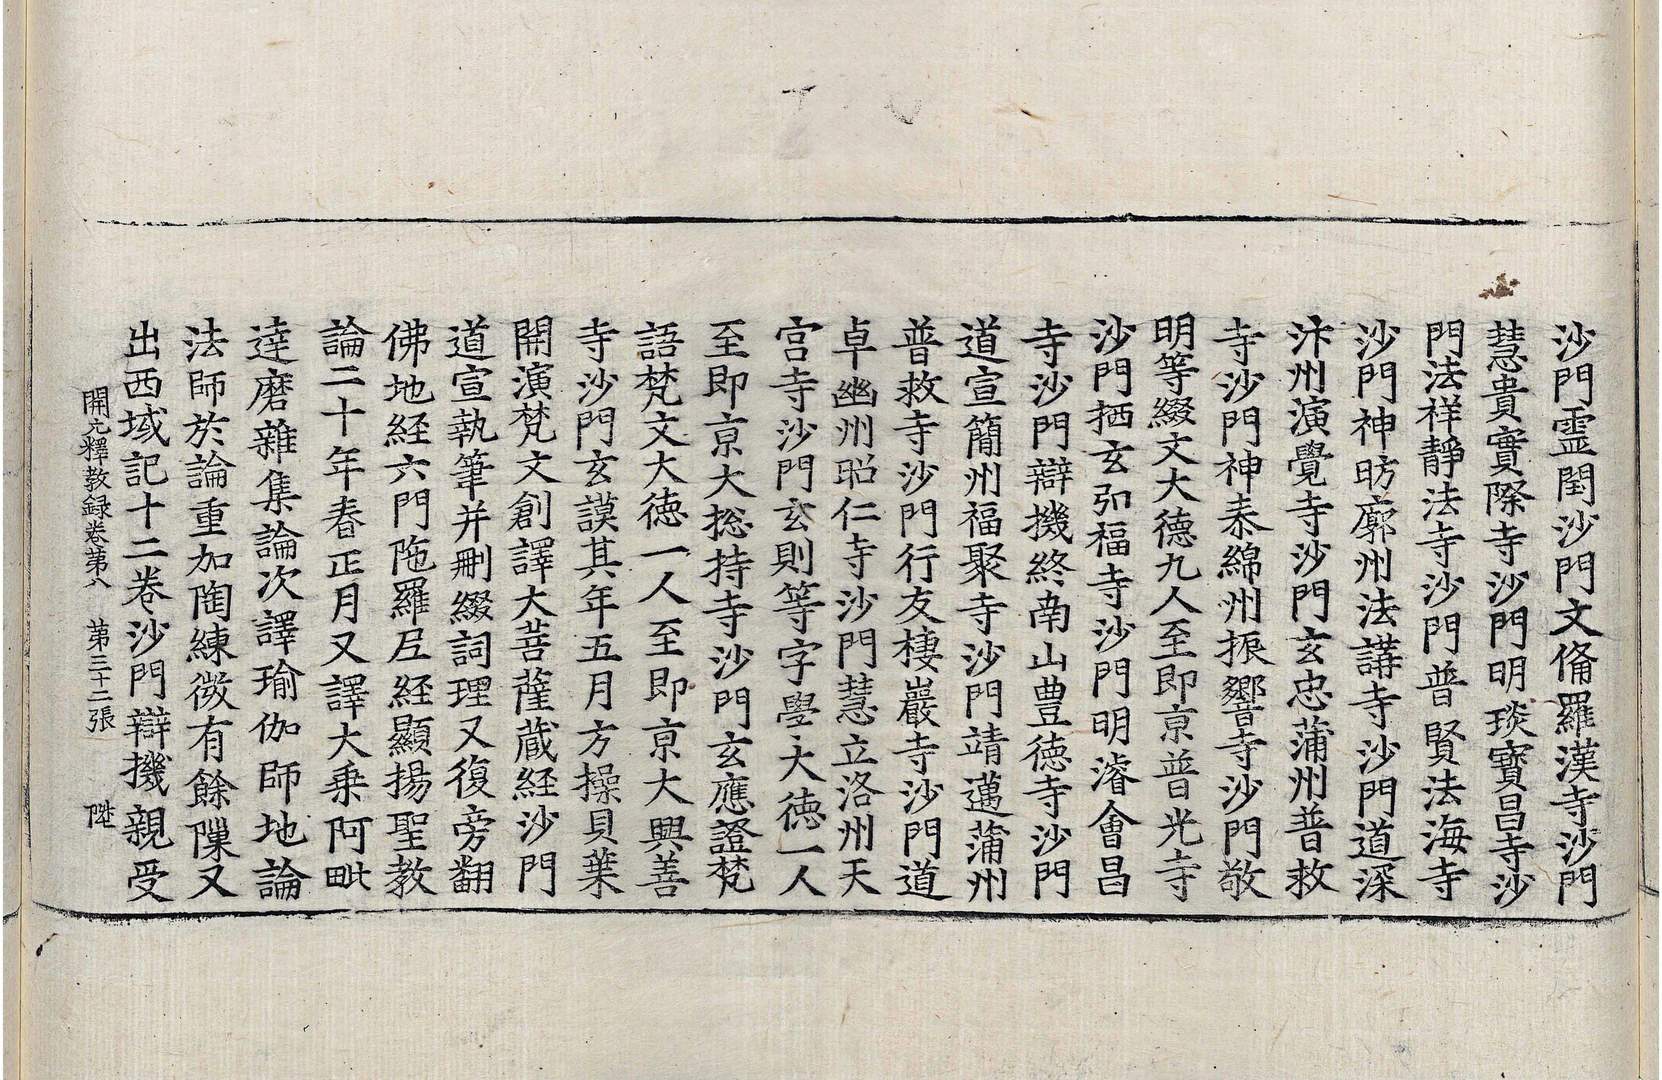 沙門靈閏沙門文俻羅漢寺沙門
慧貴實際寺沙門明琰寳昌寺沙
門法祥静法寺沙門普賢法海寺
沙門神昉廓州法講寺沙門道深
汴州演覺寺沙門玄忠蒲州普救
寺沙門神泰綿州振響寺沙門敬
明等綴文大德九人至即京普光寺
沙門栖玄弘福寺沙門明濬會昌
寺沙門辯機終南山豊德寺沙門
道宣簡州福聚寺沙門靖邁蒲州
普救寺沙門行友棲巖寺沙門道
卓豳州昭仁寺沙門慧立洛州天
宫寺沙門玄則等字學大德一人
至即京大揔持寺沙門玄應證梵
語梵文大德一人至即京大興善
寺沙門玄謨其年五月方操貝葉
開演梵文創譯大菩薩蔵経沙門
道宣執筆并刪綴詞理又復旁翻
佛地経六門陁羅尼経顯揚聖教
論二十年春正月又譯大乗阿毗
達磨雜集論次譯瑜伽師地論
法師於論重加陶練微有餘隟又
出西域記十二卷沙門辯機親受
開元釋教録卷第八　第三十二張　陞